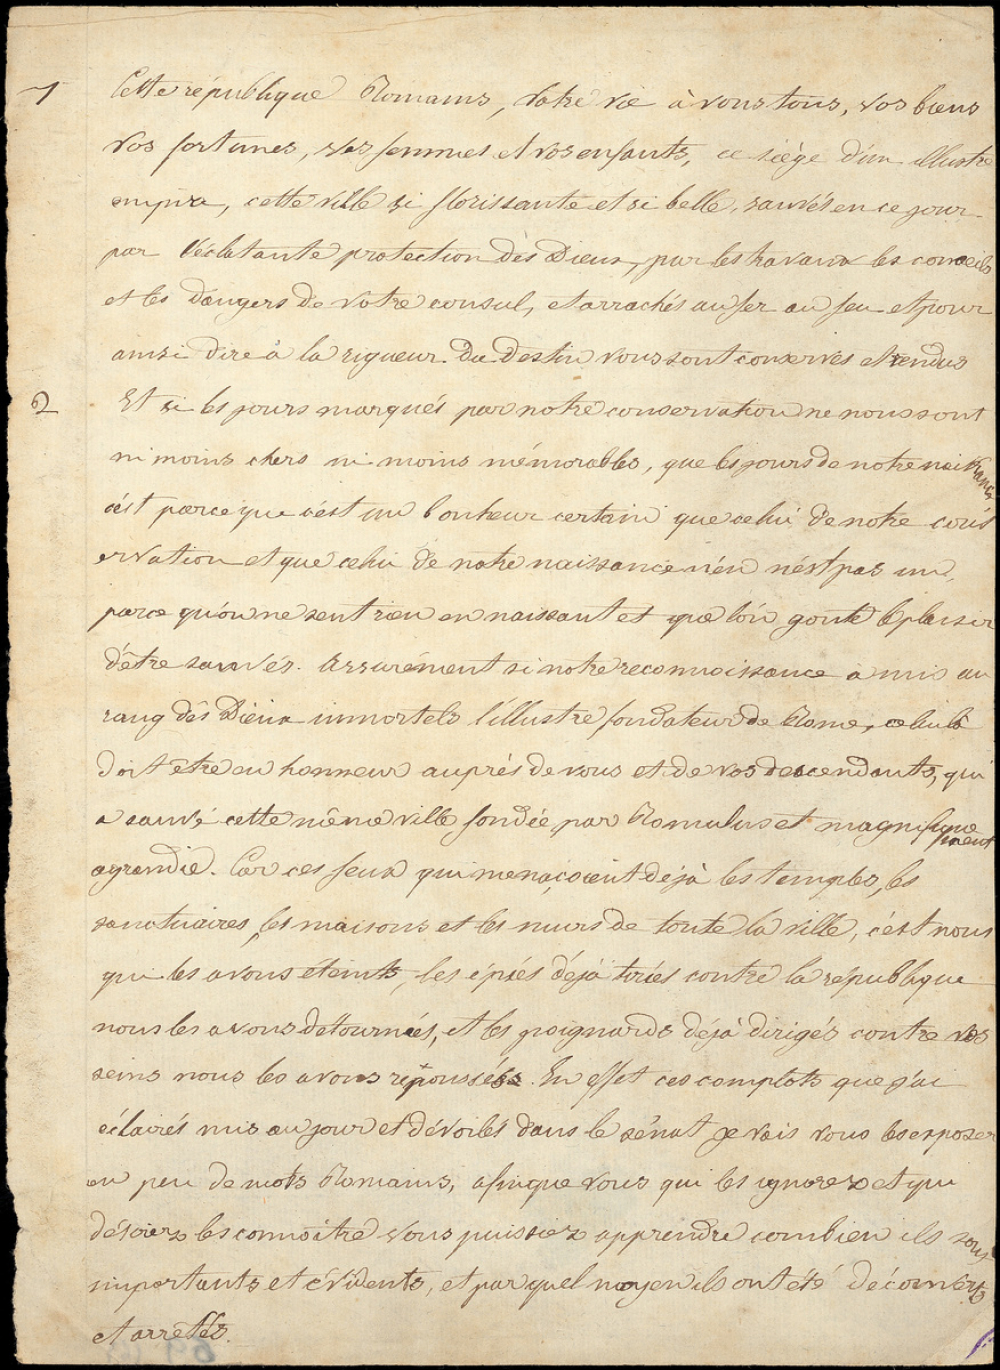 1 Cette république Romains, votre vie à vous tous, vos biens
vos fortunes, vos femmes et vos enfants, ce siège d'un illustre
empire, cette ville si florissante et si belle, sauvés en ce jour
par l'éclatante protection des Dieux, par les travaux les conseils
et les dangers de votre consul, et arrachés au fer au feu et pour
ainsi dire à la rigueur du destin vous sont conservés et rendus
2 Et si les jours marqués par notre conservation ne nous sont
ni moins chers ni moins mémorables, que les jours de notre naissance
c'est parce que c'est un bonheur certain que celui de notre cons
ervation et que celui de notre naissance n'en n'est pas un,
parce qu'on ne sent rien en naissant et que l'on goute le plaisir
d'être sauvés. Assurément si notre reconnoissance a mis au
rang des Dieux immortels l'illustre fondateur de Rome, celui là
doit être en honneur auprés de vous et de vos descendants, qui
a sauvé cette même ville fondée par Romulus et magnifiquement
agrandie. Car ces feux qui menaçoient déjà les temples, les
sanctuaires, les maisons et les murs de toute la ville, c'est nous
qui les avons éteints, les épées déjà tirées contre la republique
nous les avons detournées, et les poignards déjà dirigés contre vos
seins nous les avons repoussés. En effet ces complots que j'ai
éclairés mis au jour et dévoilés dans le sénat je vais vous les exposer
en peu de mots Romains, afin que vous qui les ignorez et qui
désirez les connoître vous puissiez apprendre combien ils sont
importants et évidents, et par quel moyen ils ont été découverts
et arretés.